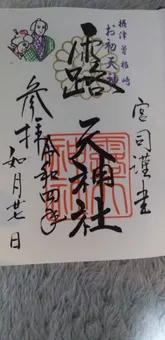 摂津曽根崎
お初天神
宮司謹書
露天神社
参拝
令和四年
和月廿七日